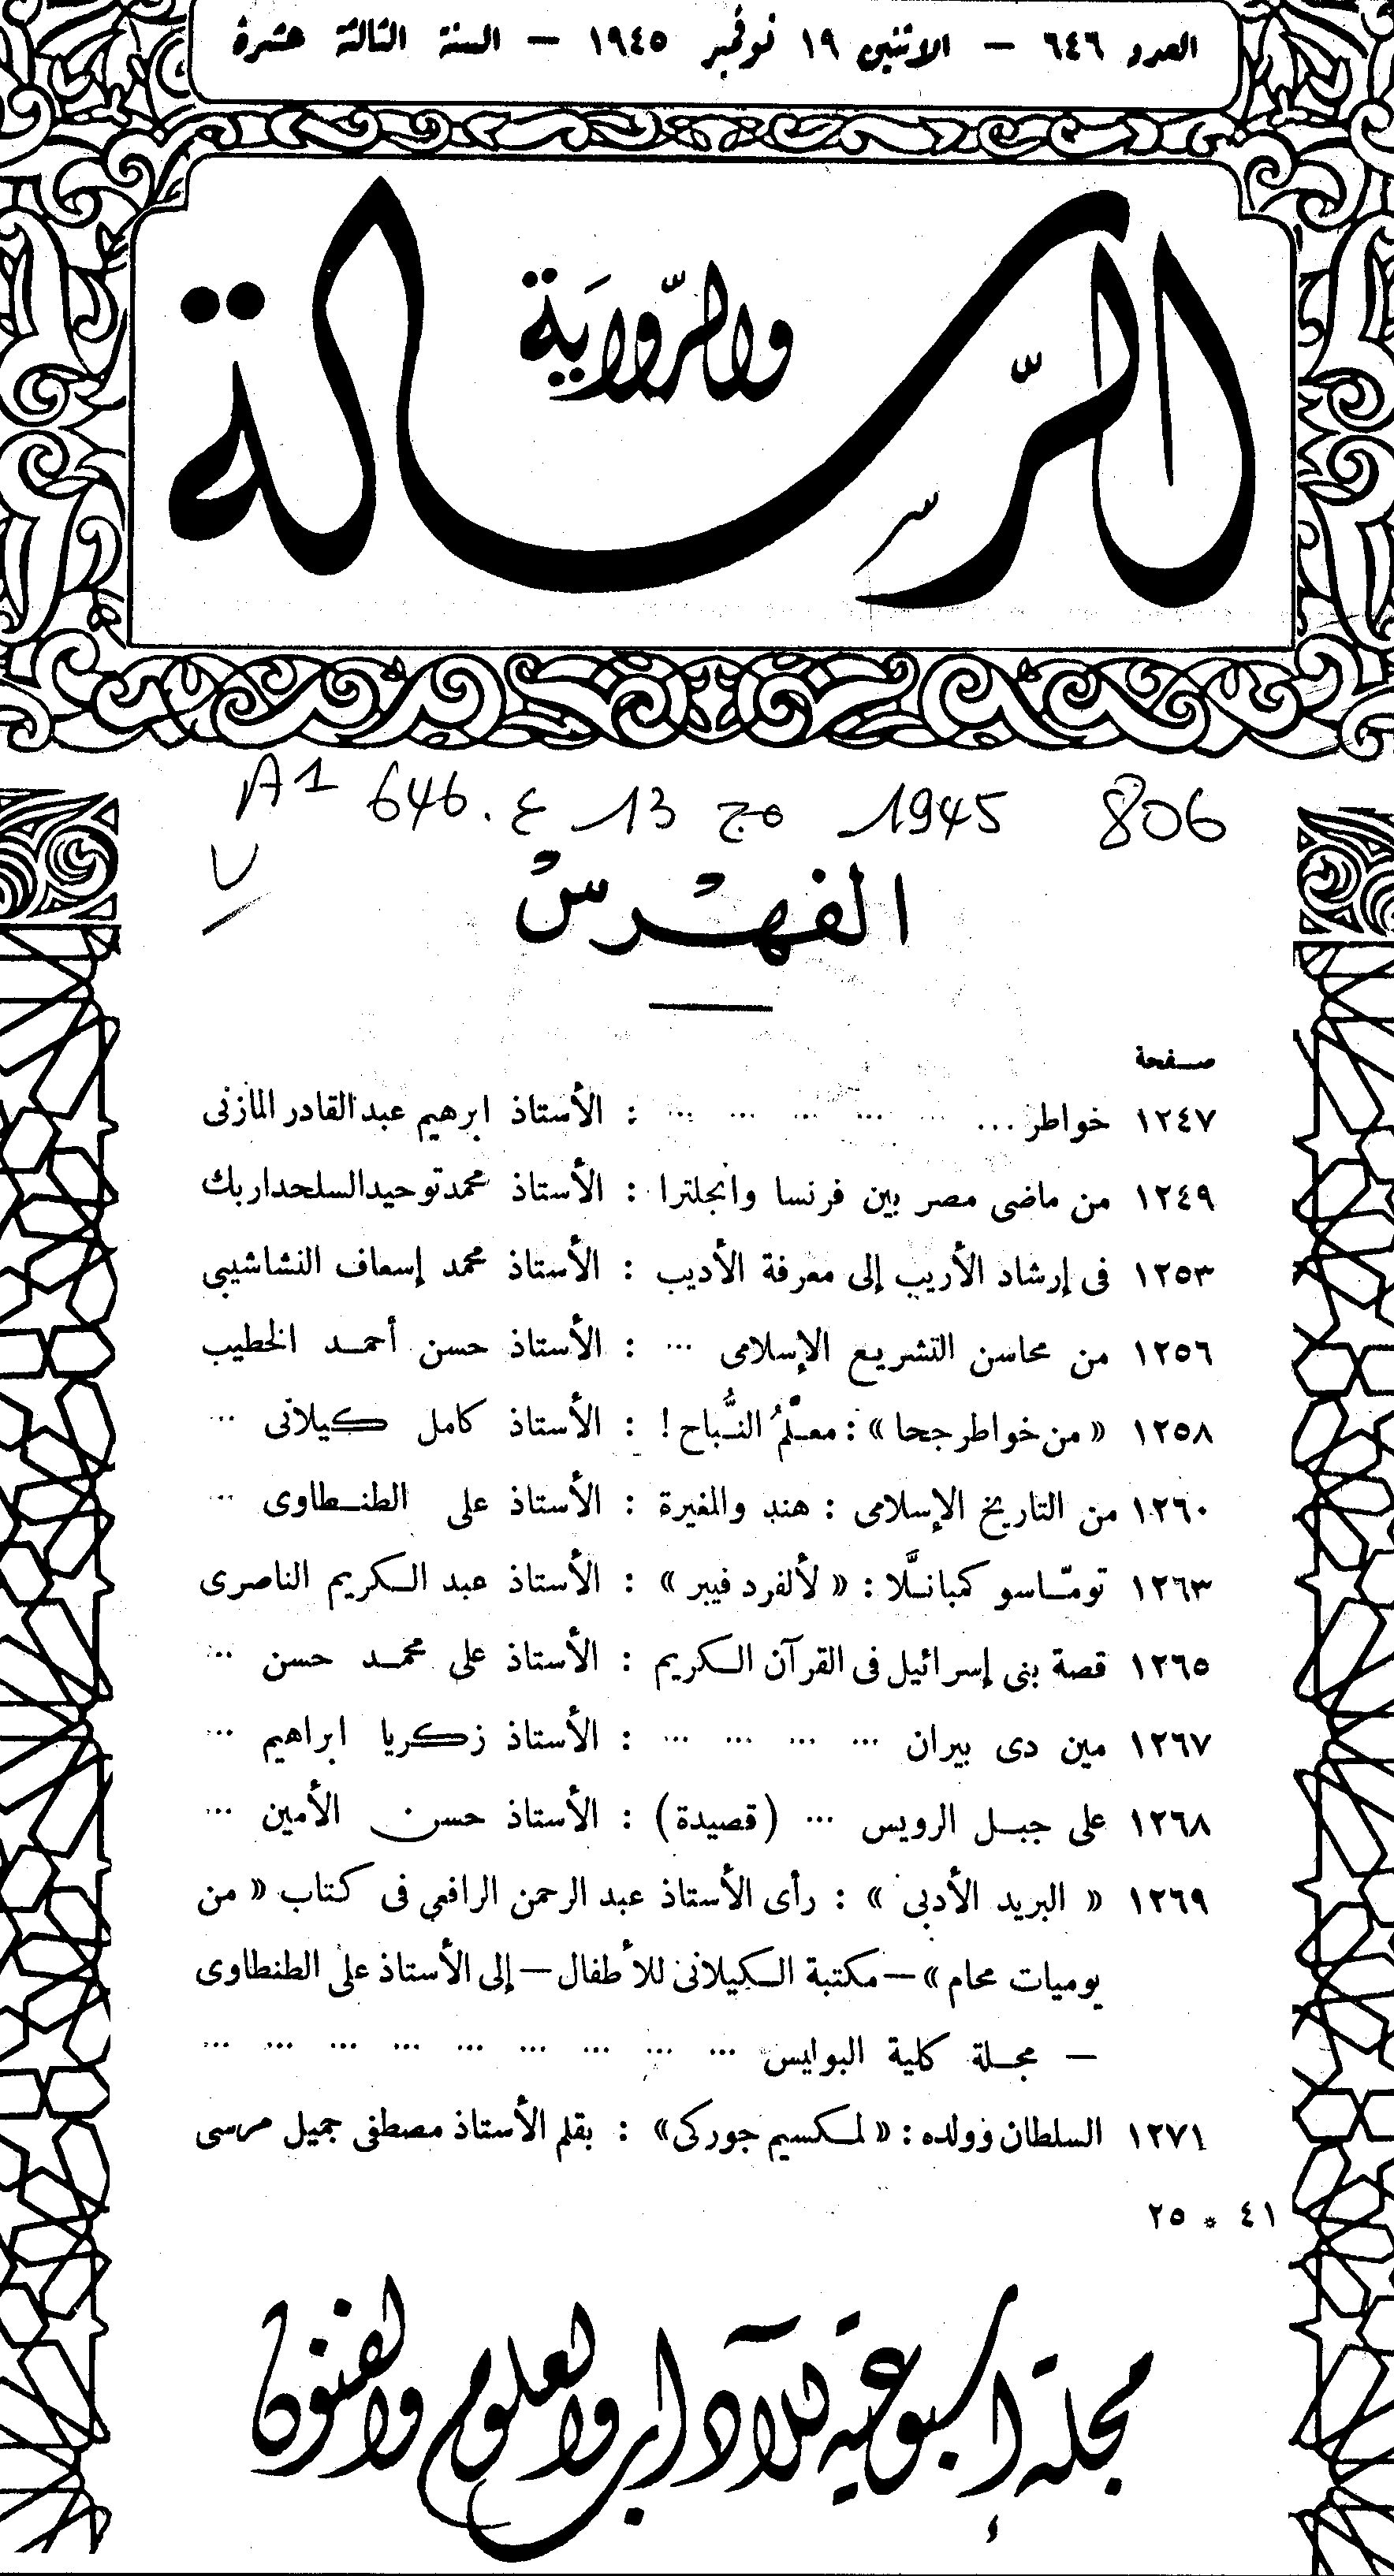 العدد ٦٤٦ — الاثنين ١٩ نوفمبر ١٩٤٥ — السنة الثالثة عشرة
الرّسالة
والرّواية
A1 646. ع 13 مج 1945 806
الفهْرسْ
صفحة
١٢٤٧ خواطر ... ... ... ... ... ... : الأستاذ ابرهيم عبد القادر المازنى
١٢٤٩ من ماضى مصر بين فرنسا وانجلترا : الأستاذ محمد توحيد السلحدار بك
١٢٥٣ فى إرشاد الأريب إلى معرفة الأديب : الأستاذ محمد إسعاف النشاشيبى
١٢٥٦ من محاسن التشريع الإسلامى ... : الأستاذ حسن أحمد الخطيب
١٢٥٨ « من خواطر جحا » : معلّمُ النُّباح ! : الأستاذ كامل كيلانى ...
١٢٦٠ من التاريخ الإسلامى : هند والمغيرة : الأستاذ على الطنطاوى ...
١٢٦٣ تومّاسو كمبانلَّا : « لألفرد فيبر » : الأستاذ عبد الكريم الناصرى
١٢٦٥ قصة بنى إسرائيل فى القرآن الكريم : الأستاذ على محمد حسن ...
١٢٦٧ مين دى بيران ... ... ... ... : الأستاذ زكريا ابراهيم ...
١٢٦٨ على جبل الرويس ... (قصيدة) : الأستاذ حسن الأمين ...
١٢٦٩ « البريد الأدبى » : رأى الأستاذ عبد الرحمن الرافعى فى كتاب « من
يوميات محام » — مكتبة الكيلانى للأطفال — إلى الأستاذ على الطنطاوى
— مجلة كلية البوليس ... ... ... ... ... ... ... ... ...
١٢٧١ السلطان وولده : « لمكسيم جوركى » : بقلم الأستاذ مصطفى جميل مرسى
٤١ * ٢٥
مجلة إسبوعية للآداب والعلوم والفنون